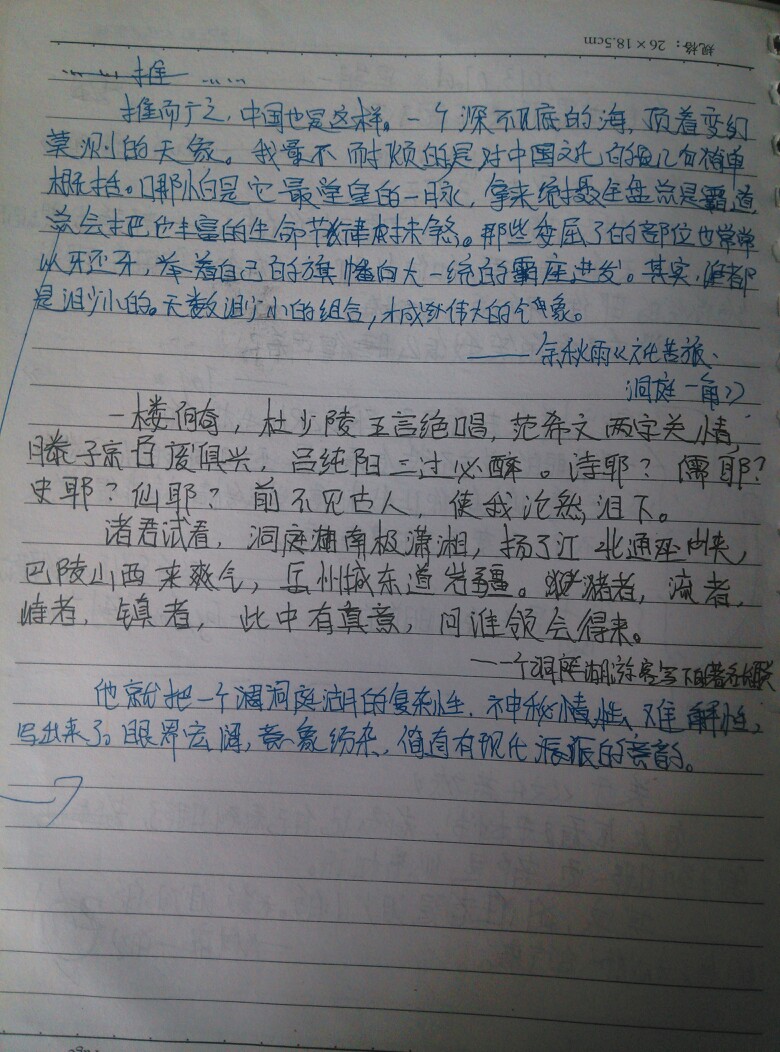 规格：26×18.5cm
…… 推 ……
推而广之，中国也是这样。一个深不见底的海，顶着变幻
莫测的天象。我最不耐烦的是对中国文化的几句简单
概括。哪怕是它最堂皇的一脉，拿来统摄全盘总是霸道，
总会把它丰富的生命节律抹煞。那些委屈了的部位也常常
以牙还牙，举着自己的旗幡向大一统的霸座进发。其实，谁都
是渺小的。无数渺小的组合，才成伟大的气象。
——余秋雨《文化苦旅、
洞庭一角》
一楼何奇，杜少陵五言绝唱，范希文两字关情，
滕子京百废俱兴，吕纯阳三过必醉。诗耶？儒耶？
史耶？仙耶？前不见古人，使我沧然泪下。
诸君试看，洞庭湖南极潇湘，扬子江北通巫峡，
巴陵山西来爽气，岳州城东道岩疆。潴者，流者，
峙者，镇者，此中有真意，问谁领会得来。
——一个洞庭湖游客写下的著名长联
他就把一个洞庭湖的复杂性、神秘性、难解性，
写出来了。眼界宏阔，意象纷杂，简直有现代派的意韵。